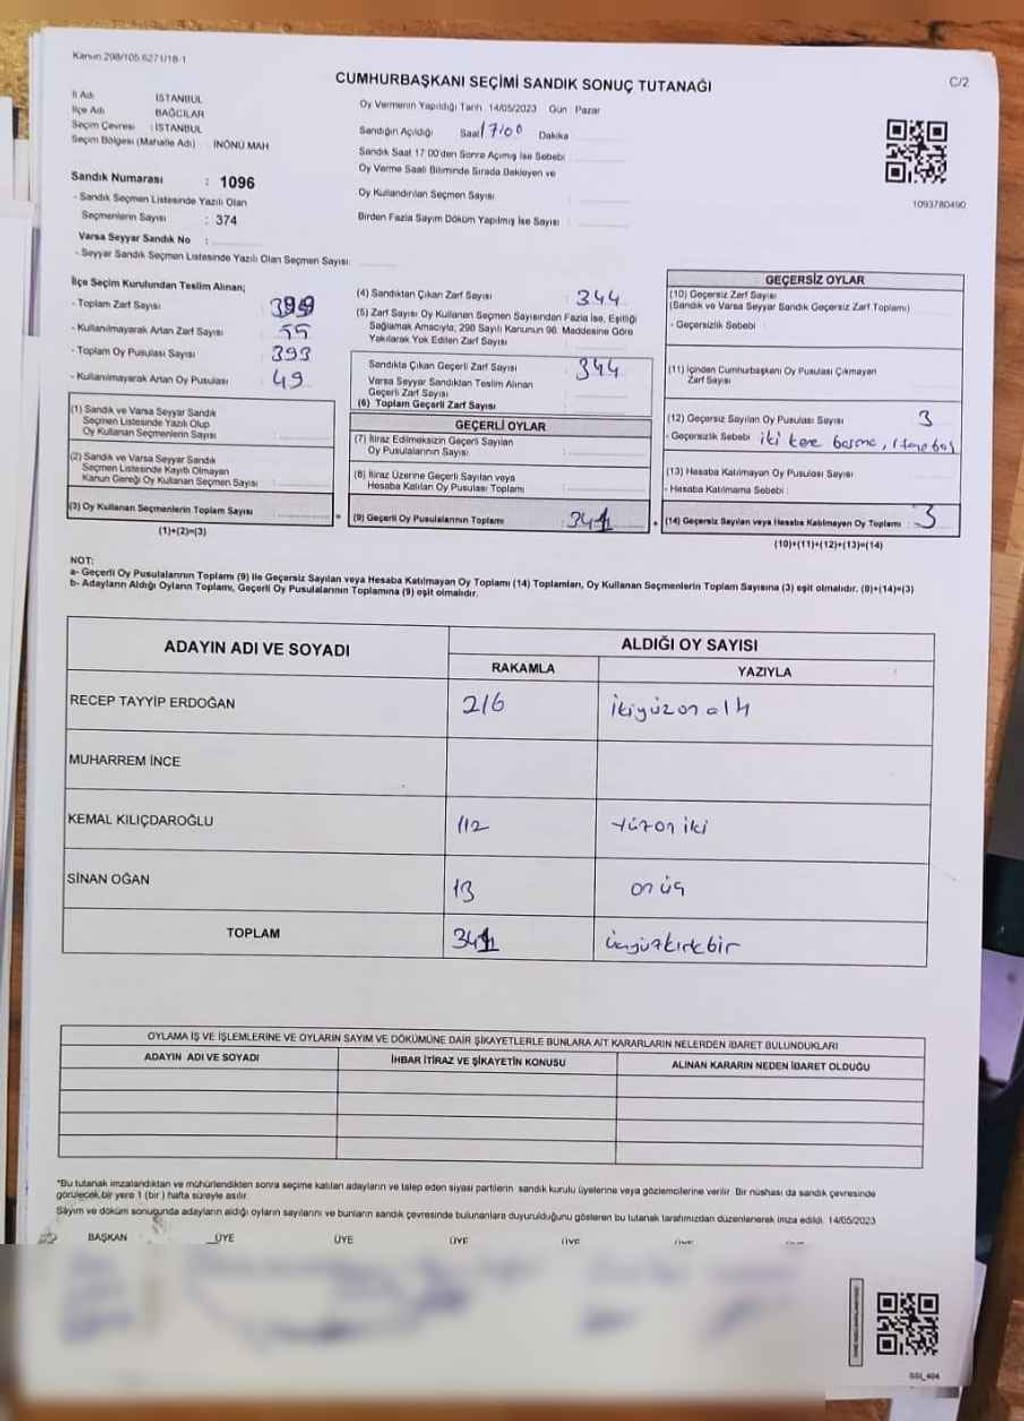 Kanun 298/105.6271/18-1
CUMHURBAŞKANI SEÇİMİ SANDIK SONUÇ TUTANAĞI
C/2
İl Adı İSTANBUL
İlçe Adı BAĞCILAR
Seçim Çevresi : İSTANBUL
Seçim Bölgesi (Mahalle Adı) İNÖNÜ MAH
Sandık Numarası : 1096
- Sandık Seçmen Listesinde Yazılı Olan
Seçmenlerin Sayısı : 374
Varsa Seyyar Sandık No :
- Seyyar Sandık Seçmen Listesinde Yazılı Olan Seçmen Sayısı:
Oy Vermenin Yapıldığı Tarih 14/05/2023 Gün Pazar
Sandığın Açıldığı Saat 17:00 Dakika
Sandık Saat 17 00'den Sonra Açımış İse Sebebi
Oy Verme Saati Bitiminde Sırada Bekleyen ve
Oy Kullandırılan Seçmen Sayısı
Birden Fazla Sayım Döküm Yapılmış İse Sayısı
1093780490
İlçe Seçim Kurulundan Teslim Alınan;
- Toplam Zarf Sayısı 399
- Kullanılmayarak Artan Zarf Sayısı 55
- Toplam Oy Pusulası Sayısı 393
- Kullanılmayarak Artan Oy Pusulası 49
(1) Sandık ve Varsa Seyyar Sandık
Seçmen Listesinde Yazılı Olup
Oy Kullanan Seçmenlerin Sayısı
(2) Sandık ve Varsa Seyyar Sandık
Seçmen Listesinde Kayıtlı Olmayan
Kanun Gereği Oy Kullanan Seçmen Sayısı
(3) Oy Kullanan Seçmenlerin Toplam Sayısı
(1)+(2)=(3)
(4) Sandıktan Çıkan Zarf Sayısı 344
(5) Zarf Sayısı Oy Kullanan Seçmen Sayısından Fazla İse, Eşitliği
Sağlamak Amacıyla, 298 Sayılı Kanunun 98. Maddesine Göre
Yakılarak Yok Edilen Zarf Sayısı
Sandıkta Çıkan Geçerli Zarf Sayısı 344
Varsa Seyyar Sandıktan Teslim Alınan
Geçerli Zarf Sayısı
(6) Toplam Geçerli Zarf Sayısı
GEÇERLİ OYLAR
(7) İtiraz Edilmeksizin Geçerli Sayılan
Oy Pusulalarının Sayısı
(8) İtiraz Üzerine Geçerli Sayılan veya
Hesaba Katılan Oy Pusulası Toplamı
(9) Geçerli Oy Pusulalarının Toplamı 341
GEÇERSİZ OYLAR
(10) Geçersiz Zarf Sayısı
(Sandık ve Varsa Seyyar Sandık Geçersiz Zarf Toplamı)
- Geçersizlik Sebebi :
(11) İçinden Cumhurbaşkanı Oy Pusulası Çıkmayan
Zarf Sayısı
(12) Geçersiz Sayılan Oy Pusulası Sayısı 3
- Geçersizlik Sebebi iki kere basma,
(13) Hesaba Katılmayan Oy Pusulası Sayısı
- Hesaba Katılmama Sebebi :
(14) Geçersiz Sayılan veya Hesaba Katılmayan Oy Toplamı : 3
(10)+(11)+(12)+(13)=(14)
NOT:
a- Geçerli Oy Pusulalarının Toplamı (9) ile Geçersiz Sayılan veya Hesaba Katılmayan Oy Toplamı (14) Toplamları, Oy Kullanan Seçmenlerin Toplam Sayısına (3) eşit olmalıdır. (9)+(14)=(3)
b- Adayların Aldığı Oyların Toplamı, Geçerli Oy Pusulalarının Toplamına (9) eşit olmalıdır.
ADAYIN ADI VE SOYADI ALDIĞI OY SAYISI
RAKAMLA YAZIYLA
RECEP TAYYİP ERDOĞAN 216 ikiyüzonaltı
MUHARREM İNCE
KEMAL KILIÇDAROĞLU 112 yüzoniki
SİNAN OĞAN 13 onüç
TOPLAM 341 üçyüzkırkbir
OYLAMA İŞ VE İŞLEMLERİNE VE OYLARIN SAYIM VE DÖKÜMÜNE DAİR ŞİKAYETLERLE BUNLARA AİT KARARLARIN NELERDEN İBARET BULUNDUKLARI
ADAYIN ADI VE SOYADI İHBAR İTİRAZ VE ŞİKAYETİN KONUSU ALINAN KARARIN NEDEN İBARET OLDUĞU
*Bu tutanak imzalandıktan ve mühürlendikten sonra seçime katılan adayların ve talep eden siyasi partilerin sandık kurulu üyelerine veya gözlemcilerine verilir. Bir nüshası da sandık çevresinde
görülecek bir yere 1 (bir) hafta süreyle asılır.
Sayım ve döküm sonucunda adayların aldığı oyların sayılarını ve bunların sandık çevresinde bulunanlara duyurulduğunu gösteren bu tutanak tarafımızdan düzenlenerek imza edildi. 14/05/2023
BAŞKAN ÜYE ÜYE ÜYE ÜYE